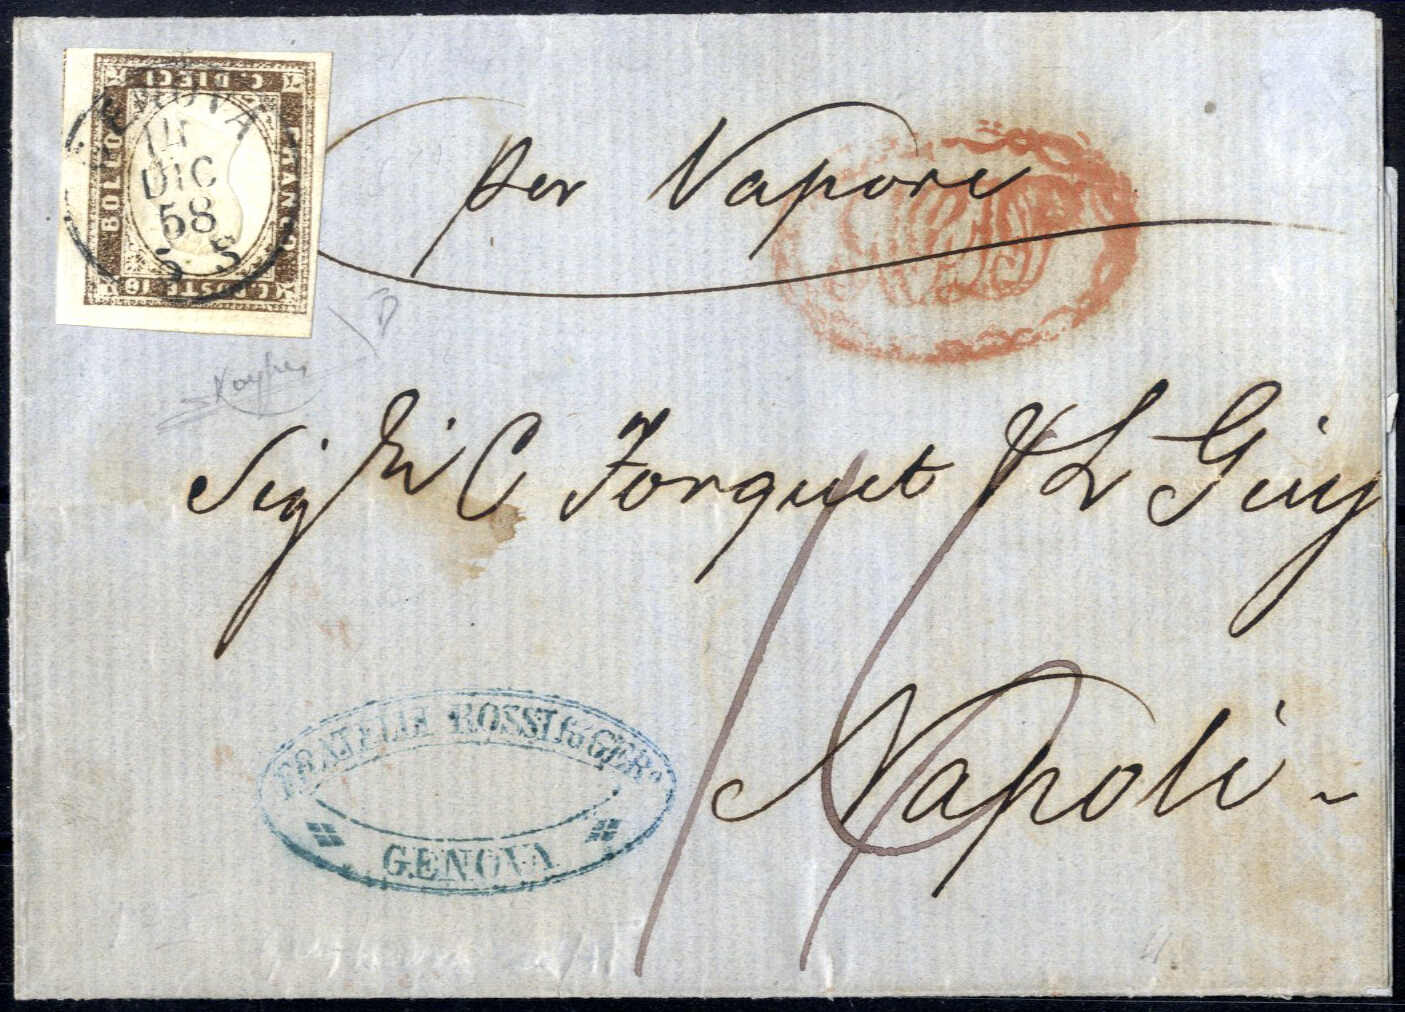 C. DIECI
BOLLO
FRANCO
C. POSTE 10
GENOVA
14
DIC
58
5 S
per Vapore
Sig ri C Forquet & L Giusj
16
Napoli
FRATELLI ROSSI fu GER.o
GENOVA